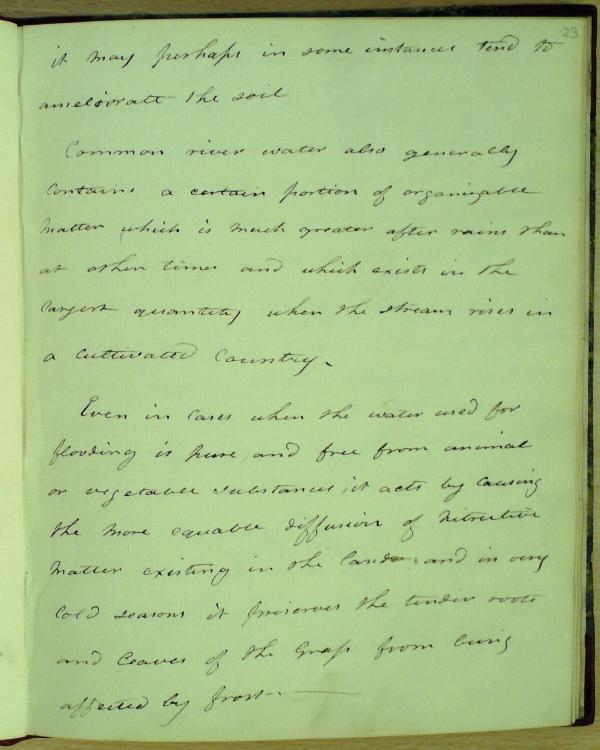 23
it may perhaps in some instances tend to
ameliorate the soil
Common river water also generally
contains a certain portion of organizable
matter which is much greater after rains than
at other times and which exists in the
largest quantity when the stream rises in
a cultivated Country.
Even in cases when the water used for
flooding is pure, and free from animal
or vegetable substances, it acts by causing
the more equable diffusion of Nutritive
matter existing in the land and in very
cold seasons it preserves the tender roots
and leaves of the Grass from being
affected by frost.